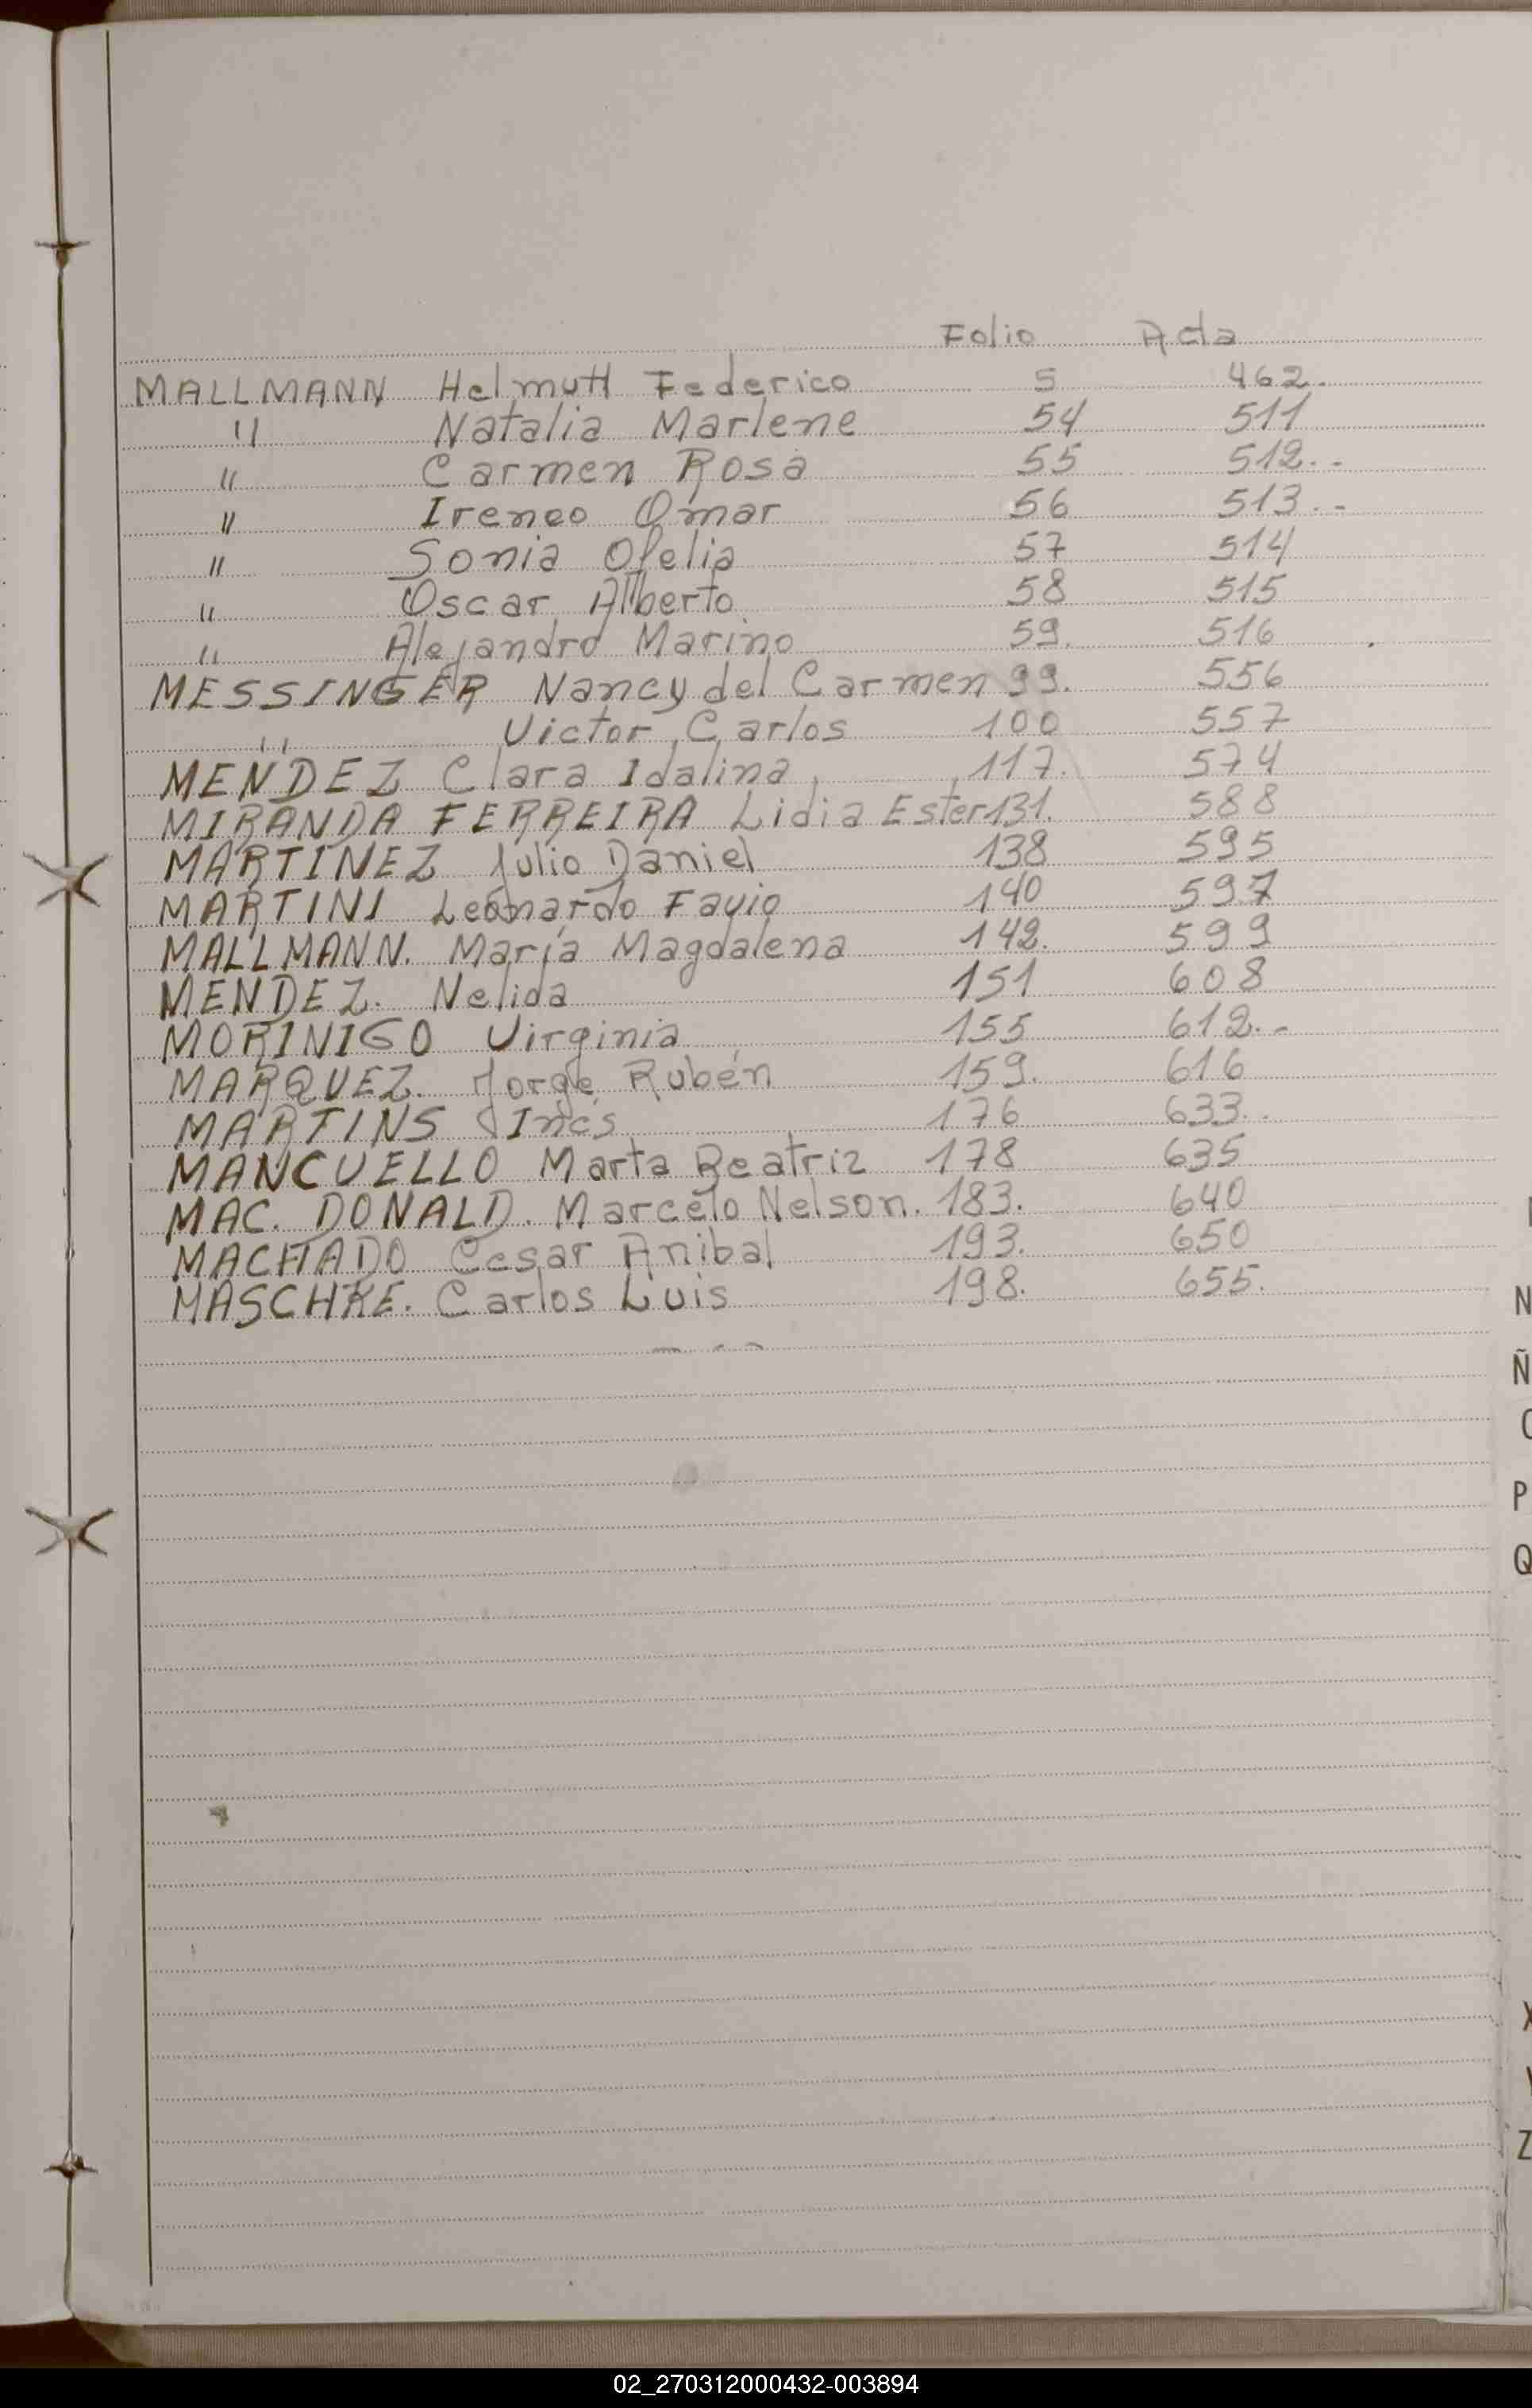 Folio Acta
MALLMANN Helmutt Federico 5 462.
" Natalia Marlene 54 511
" Carmen Rosa 55 512..-
" Ireneo Omar 56 513..-
" Sonia Ofelia 57 514
" Oscar Alberto 58 515
" Alejandro Marino 59. 516
MESSINGER Nancy del Carmen 99. 556
" Victor Carlos 100 557
MENDEZ Clara Idalina 117. 574
MIRANDA FERREIRA Lidia Ester 131. 588
MARTINEZ Julio Daniel 138 595
MARTINI Leonardo Favio 140 597
MALLMANN. María Magdalena 142. 599
MENDEZ. Nelida 151 608
MORINIGO Virginia 155 612..-
MARQUEZ. Jorge Rubén 159. 616
MARTINS Inés 176 633..
MANCUELLO Marta Beatriz 178 635
MAC. DONALD. Marcelo Nelson. 183. 640
MACHADO Cesar Anibal 193. 650
MASCHKE. Carlos Luis 198. 655.
N
Ñ
P
Q
Z
02_270312000432-003894